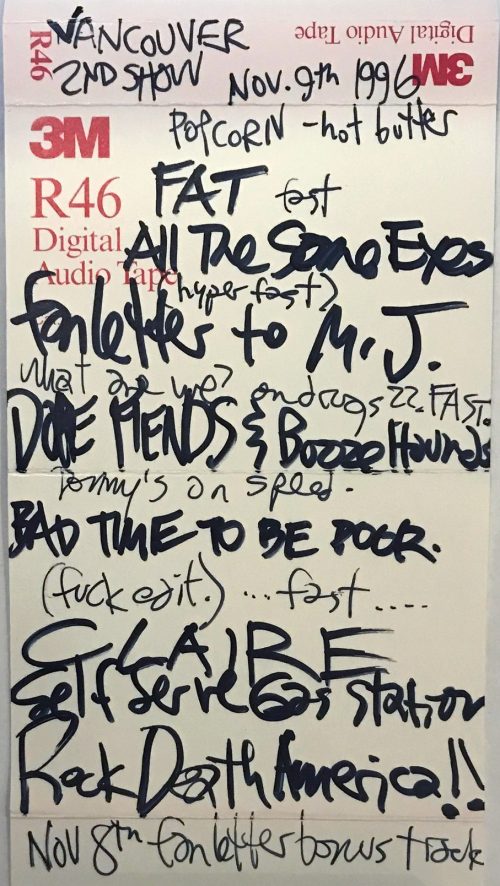 VANCOUVER
2ND SHOW
NOV. 9th 1996
R46
Digital Audio Tape
3M
POPCORN - hot butter
3M
R46
Digital
Audio Tape
FAT fast
All The Same Eyes
hyper fast)
fan letter to M.J.
what are we? on drugs ??. FAST.
DOPE FIENDS & Booze Hounds
Tommy's on speed.
BAD TIME TO BE POOR.
(fuck edit.) ... fast ....
CLAIRE
Self Serve Gas Station
Rock Death America!!
NOV 8th fan letter bonus track